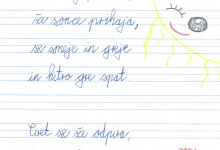 že sonce prihaja,
se smeje in greje
in hitro gre spat.
Cvet se že odpira,